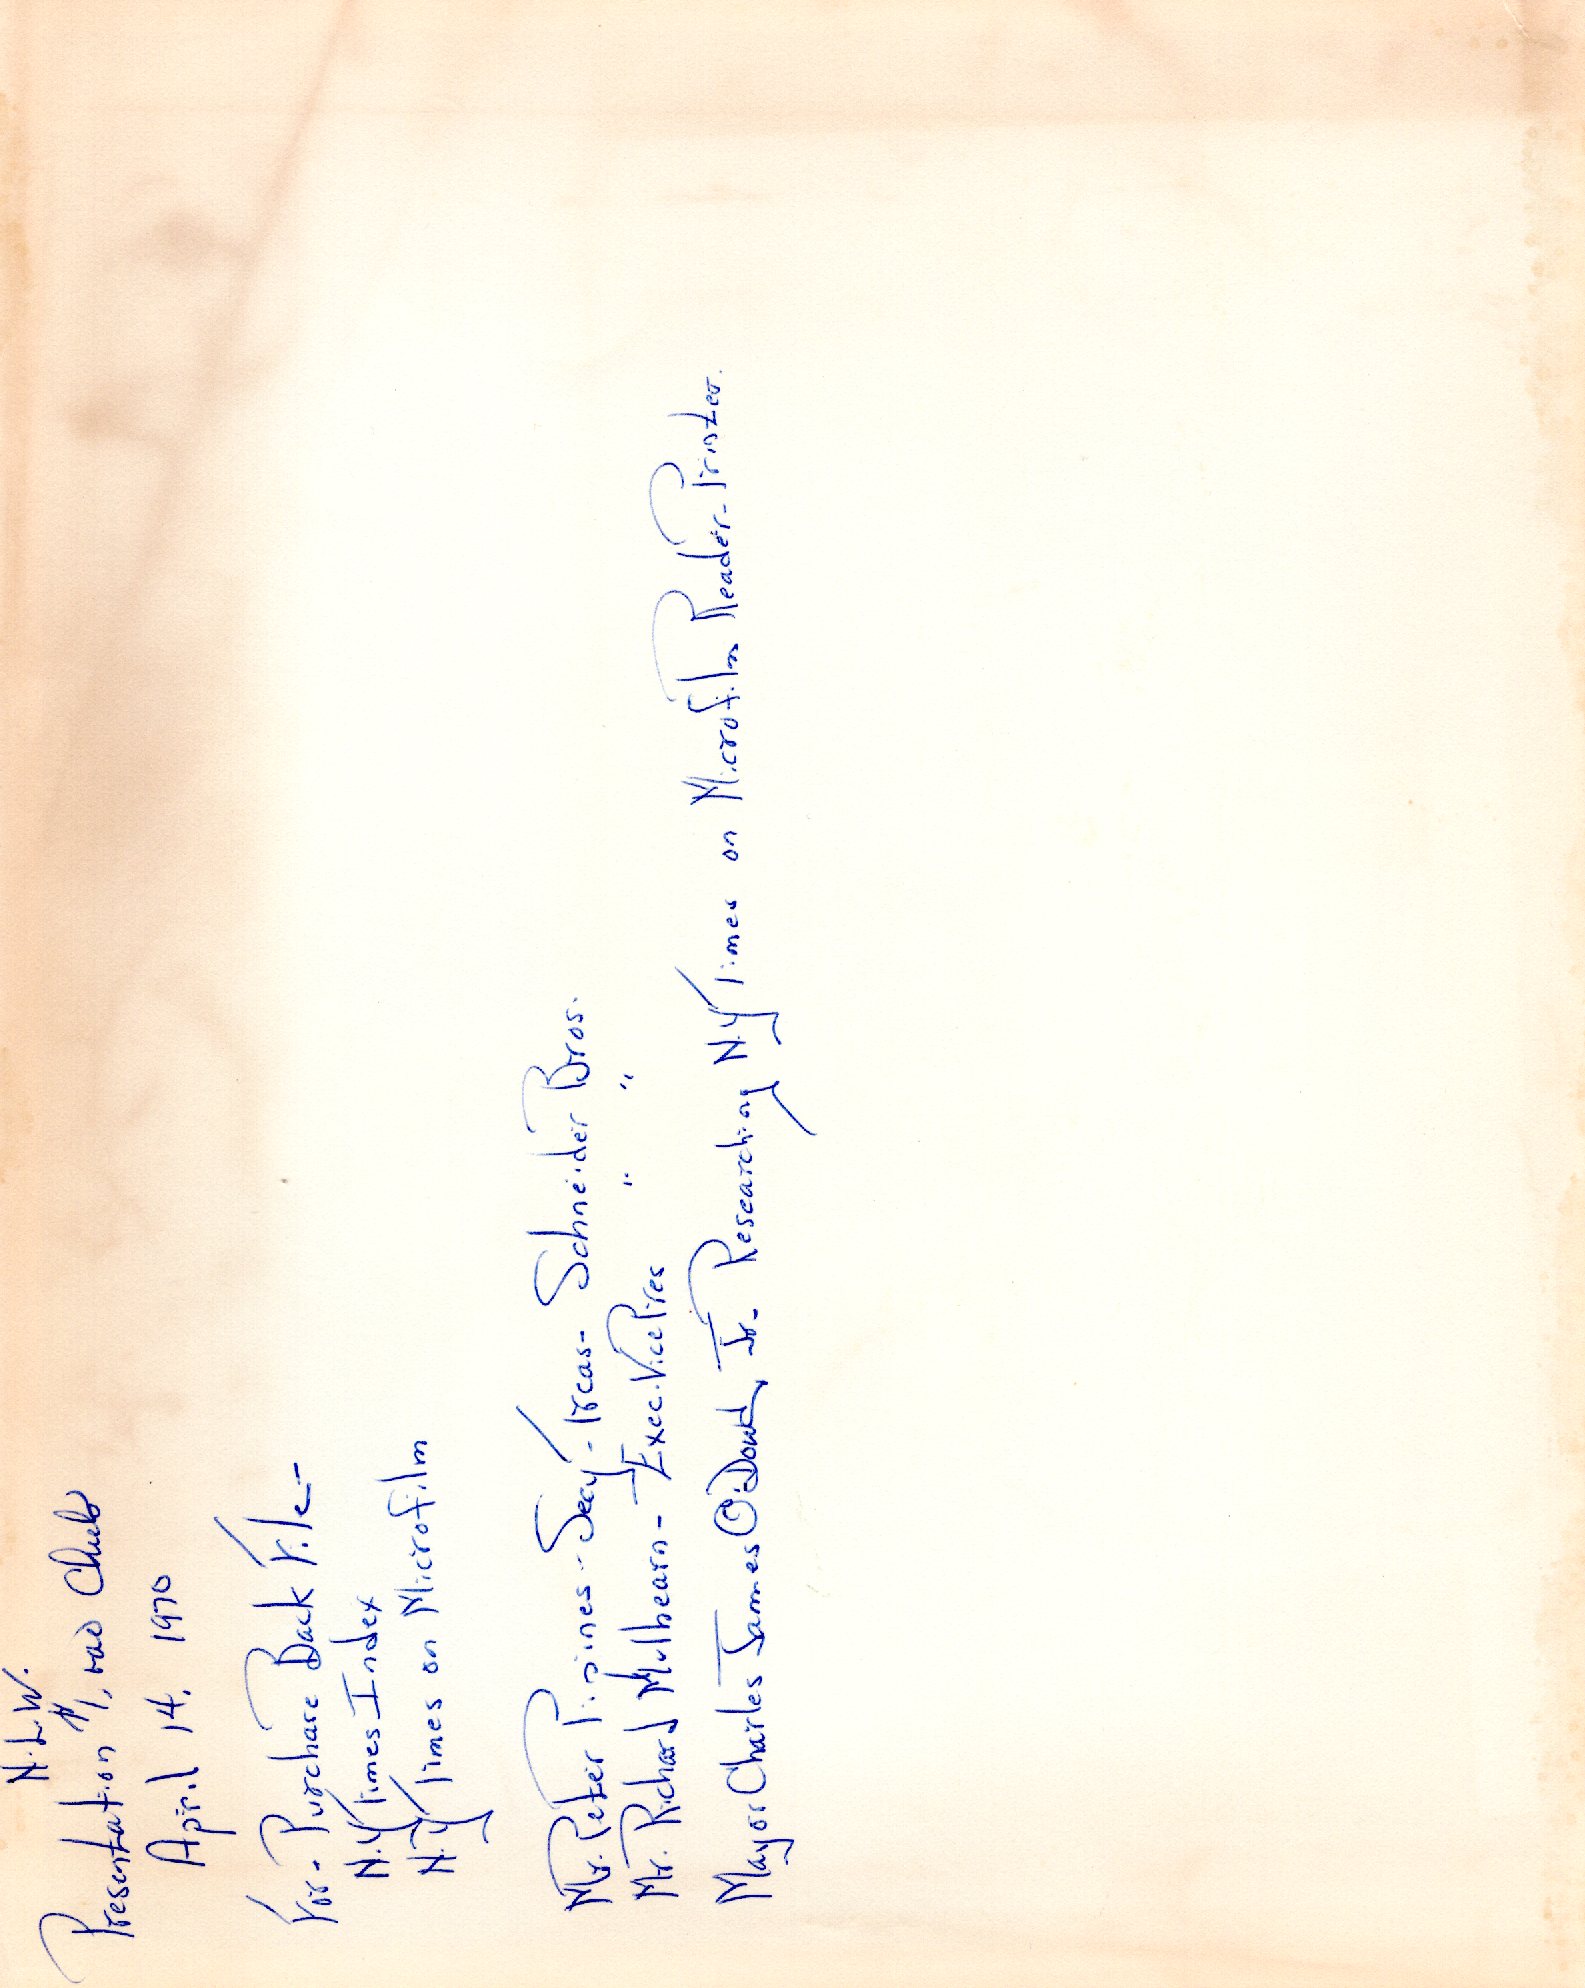 N.L.W.
Presentation #1,000 Club
April 14, 1970
For - Purchase Back File -
N.Y Times Index
N.Y Times on Microfilm
Mr. Peter Pisines - Secy - Treas - Schneider Bros.
Mr. Richard Mulhearn - Exec. Vice Pres " "
Mayor Charles James O'Dowd, Jr. - Researching N.Y Times on Microfilm Reader-Printer.